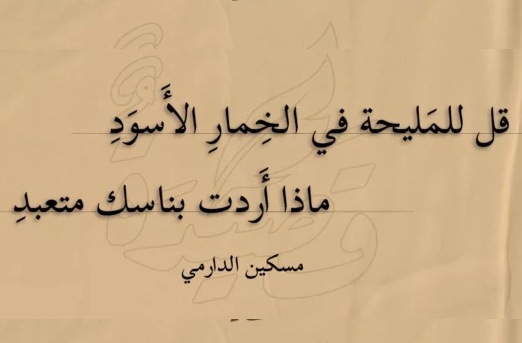 قل للمَليحة في الخِمارِ الأَسوَدِ
ماذا أَردت بناسك متعبدِ
مسكين الدارمي